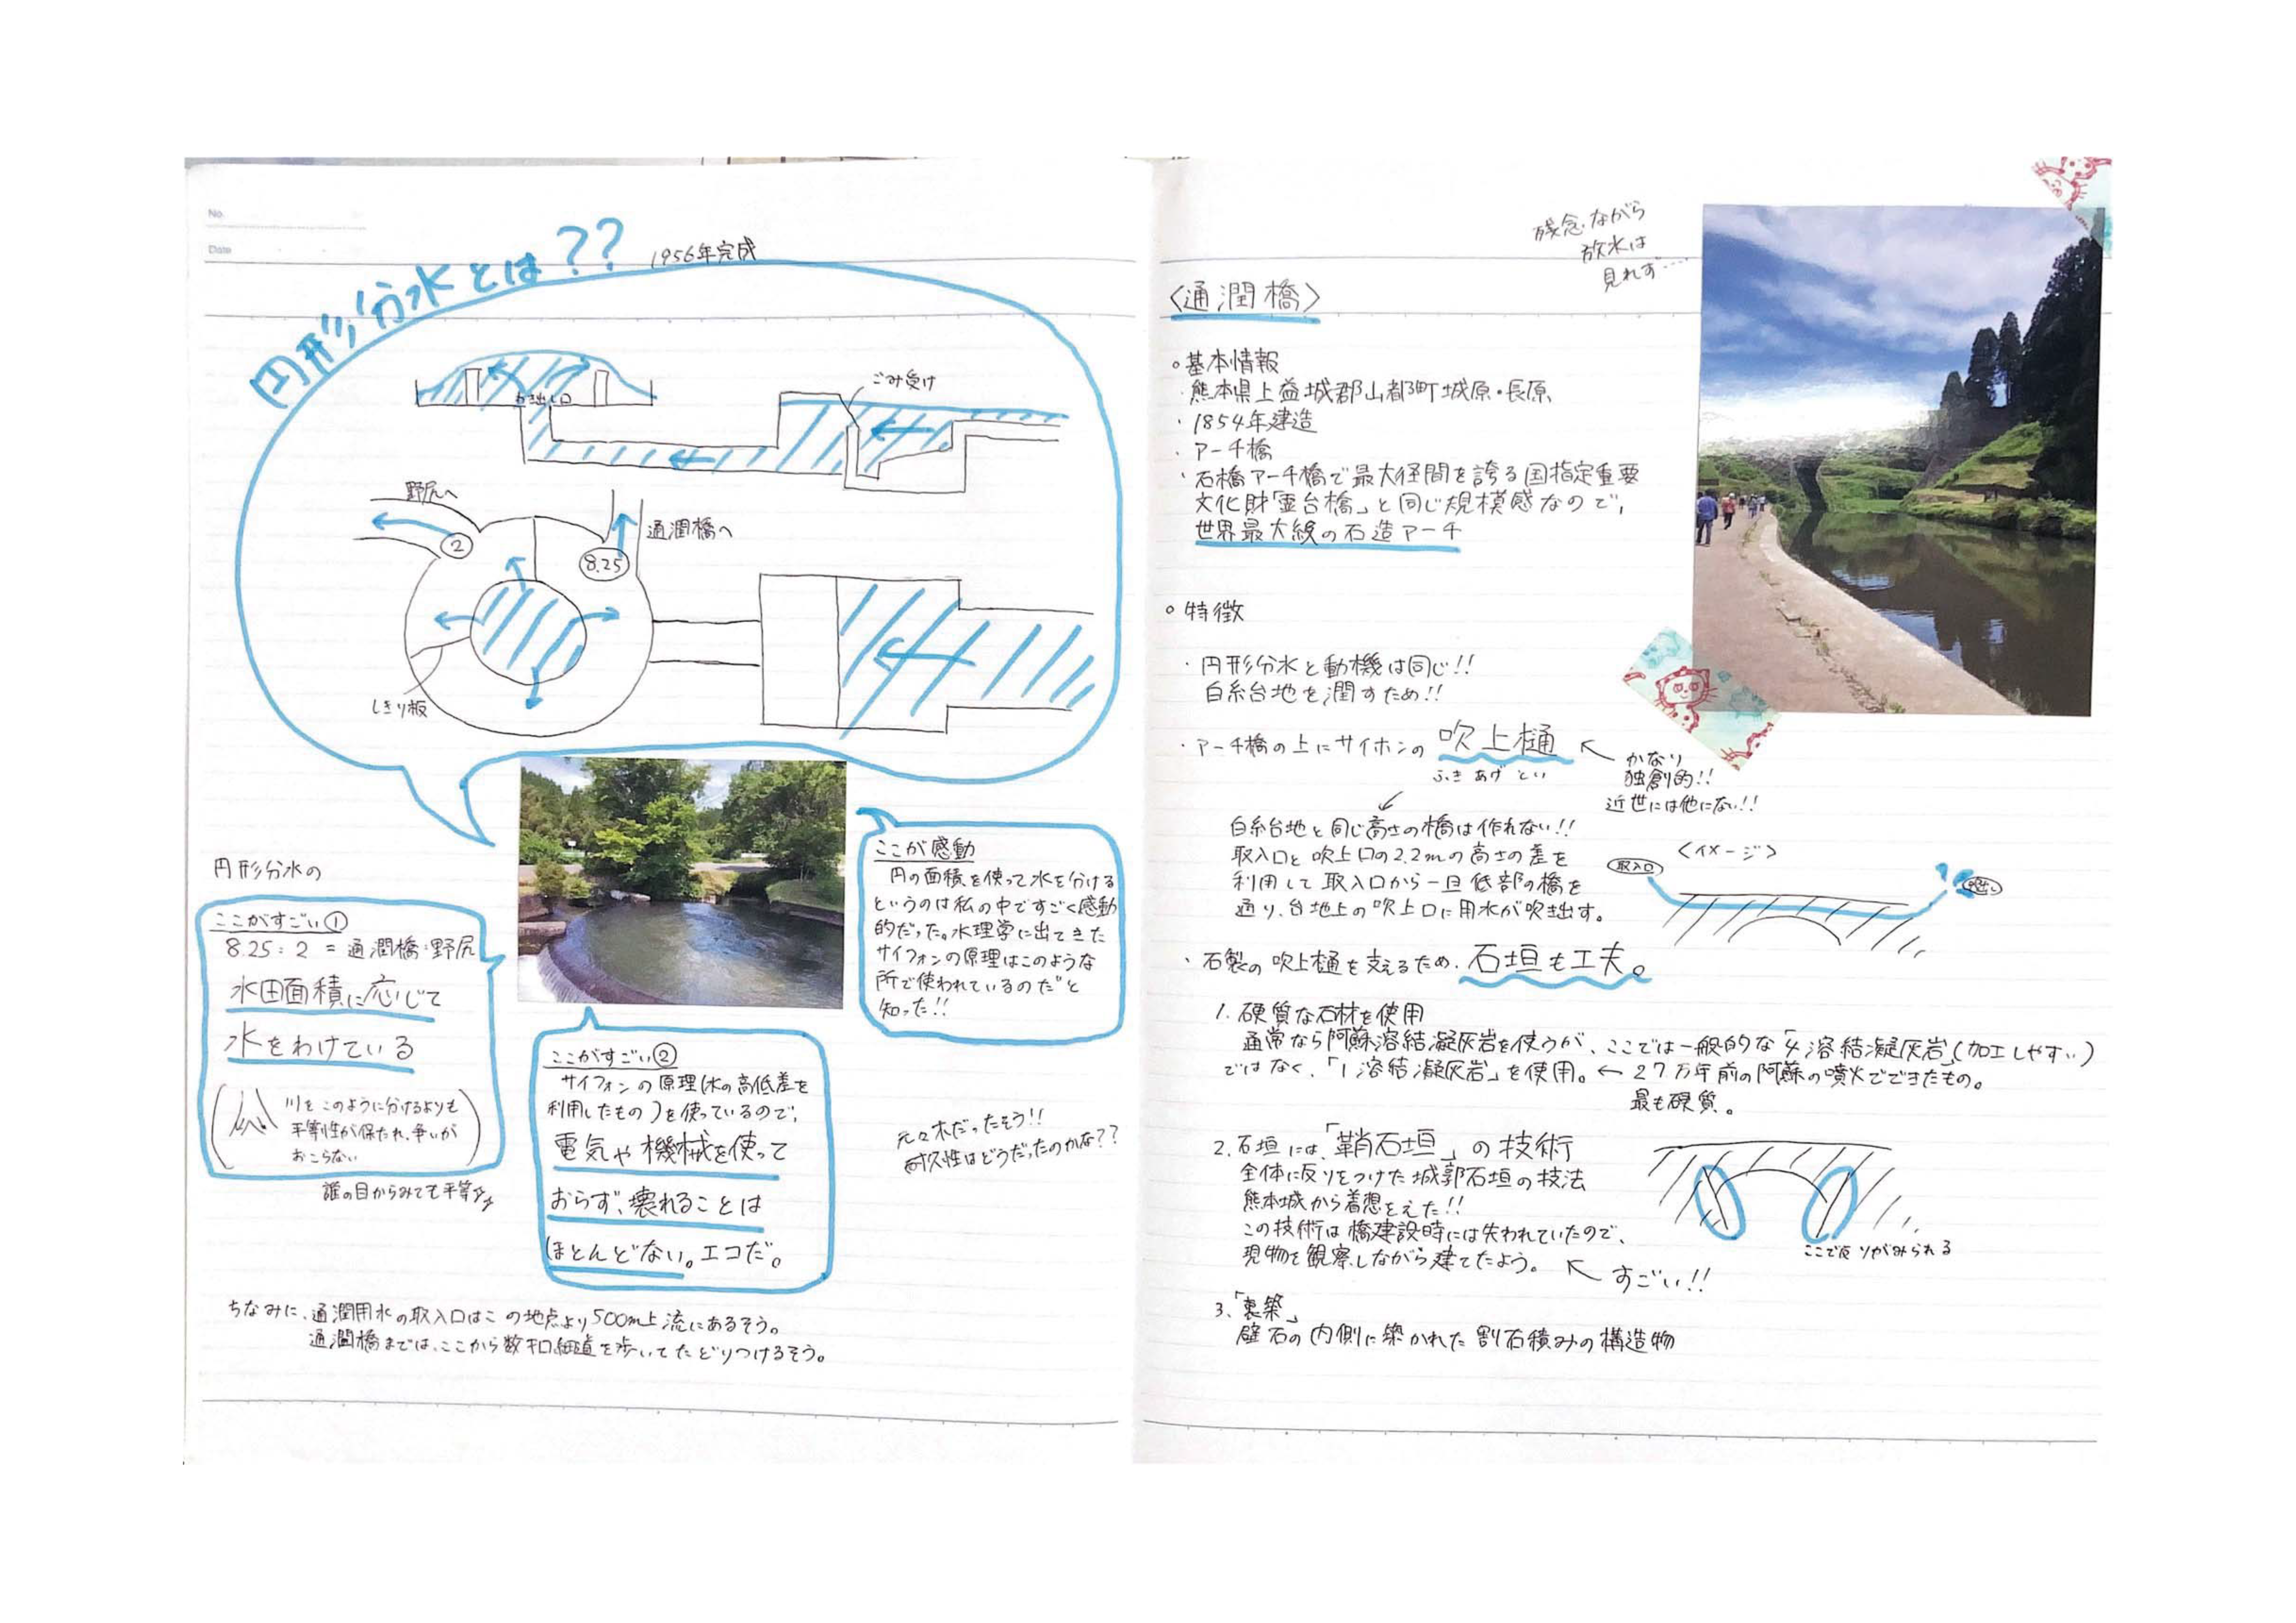 No.
Date
円形分水とは??
1956年完成
ごみ受け
吹出し口
野尻へ
②
8.25
通潤橋へ
しきり板
円形分水の
ここがすごい①
8.25:2 = 通潤橋:野尻
水田面積に応じて
水をわけている
川をこのように分けるよりも
平等性が保たれ、争いが
おこらない
誰の目からみても平等
ここが感動
円の面積を使って水を分ける
というのは私の中ですごく感動
的だった。水理学に出てきた
サイフォンの原理はこのような
所で使われているのだと
知った!!
ここがすごい②
サイフォンの原理(水の高低差を
利用したもの)を使っているので、
電気や機械を使って
おらず、壊れることは
ほとんどない。エコだ。
元々木だったそう!!
耐久性はどうだったのかな??
ちなみに、通潤用水の取入口はこの地点より500m上流にあるそう。
通潤橋までは、ここから数キロ細道を歩いてたどりつけるそう。
残念ながら
放水は
見れず…
〈通潤橋〉
○基本情報
・熊本県上益城郡山都町城原・長原
・1854年建造
・アーチ橋
・石橋アーチ橋で最大径間を誇る国指定重要
文化財「霊台橋」と同じ規模感なので、
世界最大線の石造アーチ
○特徴
・円形分水と動機は同じ!!
白糸台地を潤すため!!
・アーチ橋の上にサイホンの吹上樋
ふきあげとい
かなり
独創的!!
近世には他にない!!
白糸台地と同じ高さの橋は作れない!!
取入口と吹上口の2.2mの高さの差を
利用して取入口から一旦低部の橋を
通り、台地上の吹上口に用水が吹き出す。
〈イメージ〉
取入口
・石製の吹上樋を支えるため、石垣も工夫。
1. 硬質な石材を使用
通常なら阿蘇溶結凝灰岩を使うが、ここでは一般的な「4溶結凝灰岩」(加工しやすい)
ではなく、「1溶結凝灰岩」を使用。←27万年前の阿蘇の噴火でできたもの。
最も硬質。
2. 石垣には、「鞘石垣」の技術
全体に反りをつけた城郭石垣の技法
熊本城から着想をえた!!
この技術は橋建設時には失われていたので、
現物を観察しながら建てたよう。
すごい!!
ここで反りがみられる
3. 「裏築」
壁石の内側に築かれた割石積みの構造物